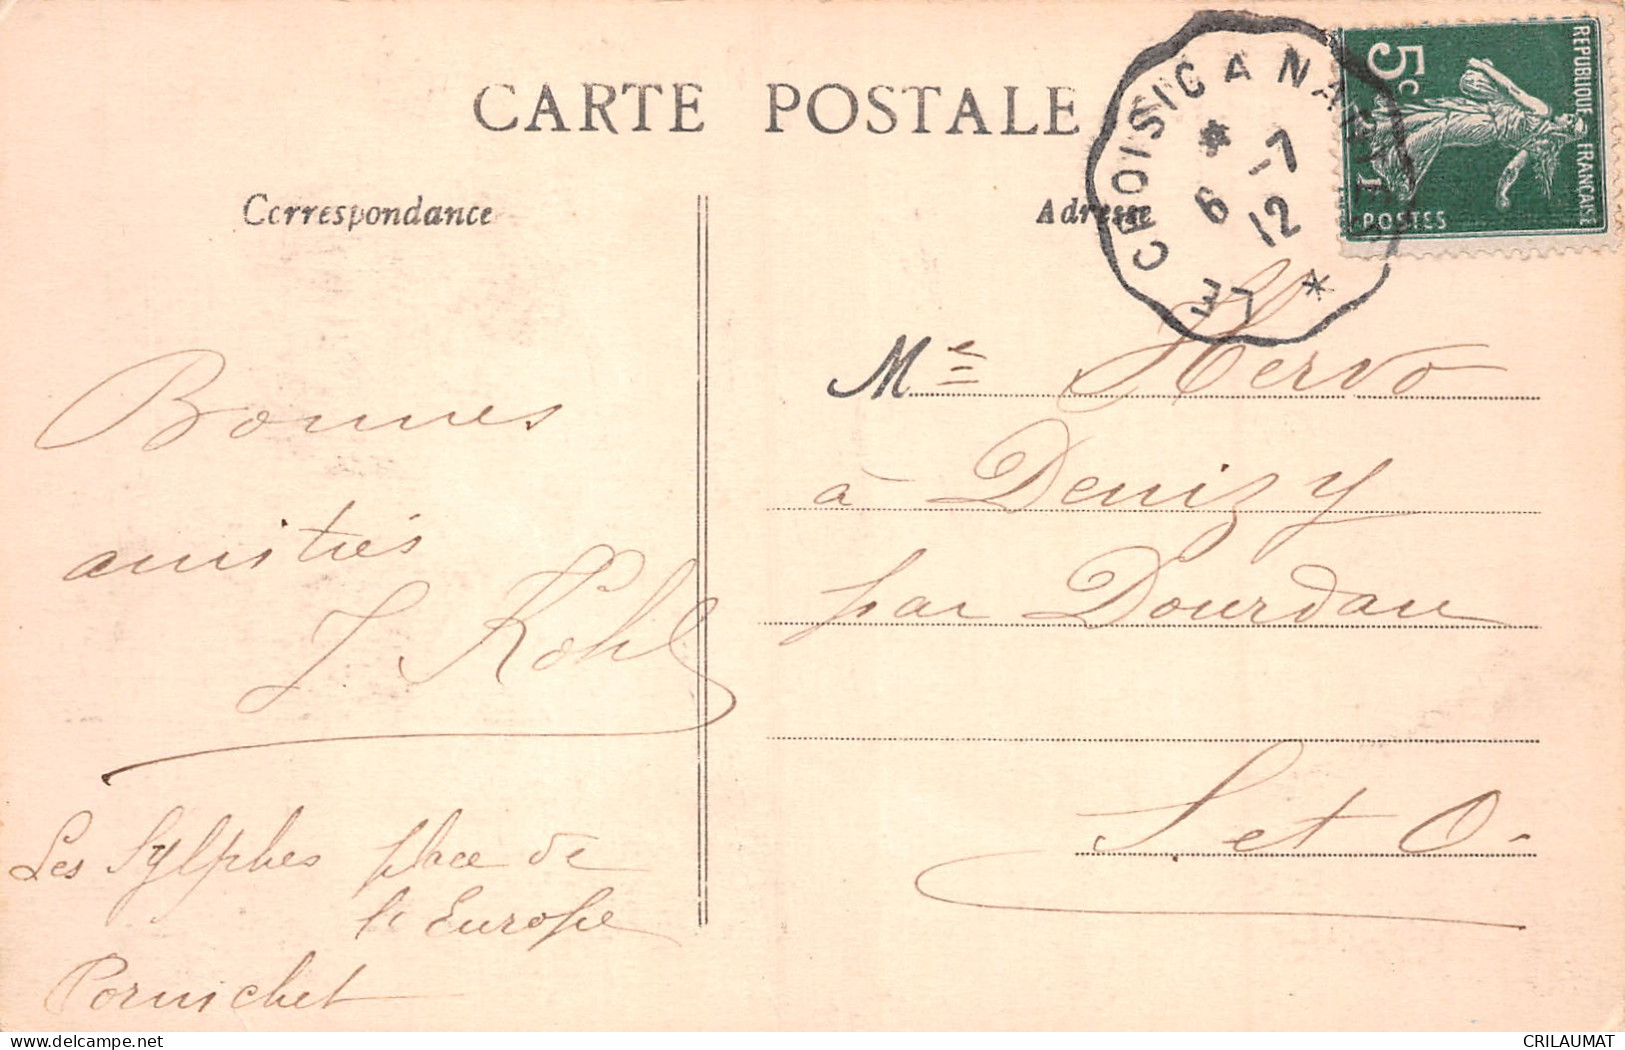 CARTE POSTALE
Correspondance
Adresse
LE CROISIC A NANTES
6 -7
12
REPUBLIQUE FRANÇAISE
5c
POSTES
Bonnes
amitiés
J Kohl
Les Sylphes place de
l'Europe
Pornichet
Me Hervo
à Denisy
par Dourdan
S. et O.
CRILAUMAT